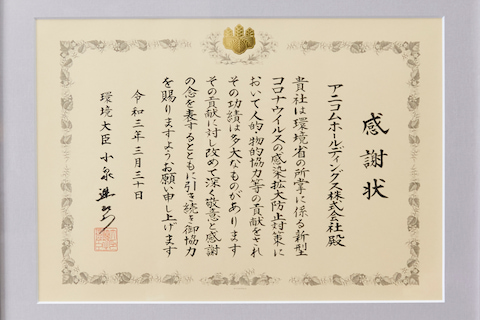 感謝状
アニコムホールディングス株式会社殿
貴社は環境省の所掌に係る新型
コロナウイルスの感染拡大防止対策に
おいて人的・物的協力等の貢献をされ
その功績は多大なものがあります
その貢献に対し改めて深く敬意と感謝
の念を表するとともに引き続き御協力
を賜りますようお願い申し上げます
令和三年三月三十日
環境大臣 小泉進次郎